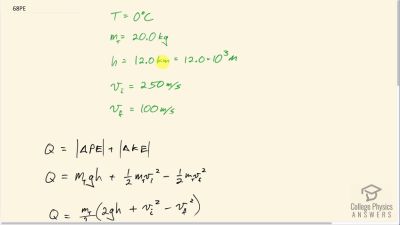 68PE
T = 0°C
m_T = 20.0 kg
h = 12.0 km = 12.0 · 10³ m
v_i = 250 m/s
v_f = 100 m/s
Q = |ΔPE| + |ΔKE|
Q = m_T gh + ½ m_T v_i² − ½ m_T v_f²
Q = m_T/2 (2gh + v_i² − v_f²)
College Physics
ANSWERS